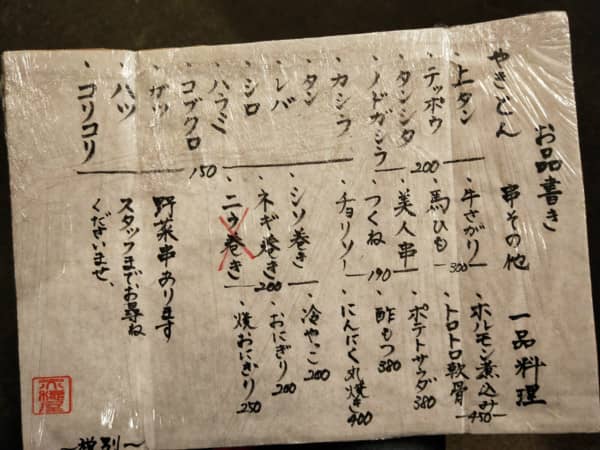 お品書き
やきとん
、上タン
、テッポウ
、タンシタ
200
、ノドガシラ
、カシラ
、タン
、レバ
、シロ
、ハラミ
、コブクロ
150
、ガツ
、ハツ
、コリコリ
串その他
、牛さがり
、馬ひも
300
、美人串
、つくね
190
、チョリソー
、シソ巻き
、ネギ巻き
200
、ニラ巻き
野菜串あります
スタッフまでお尋ね
くださいませ、
一品料理
、ホルモン煮込み
450
、トロトロ軟骨
、ポテトサラダ
380
、酢もつ
380
、にんにく丸焼き
400
、冷やっこ
200
、おにぎり
200
、焼おにぎり
250
〜税別〜